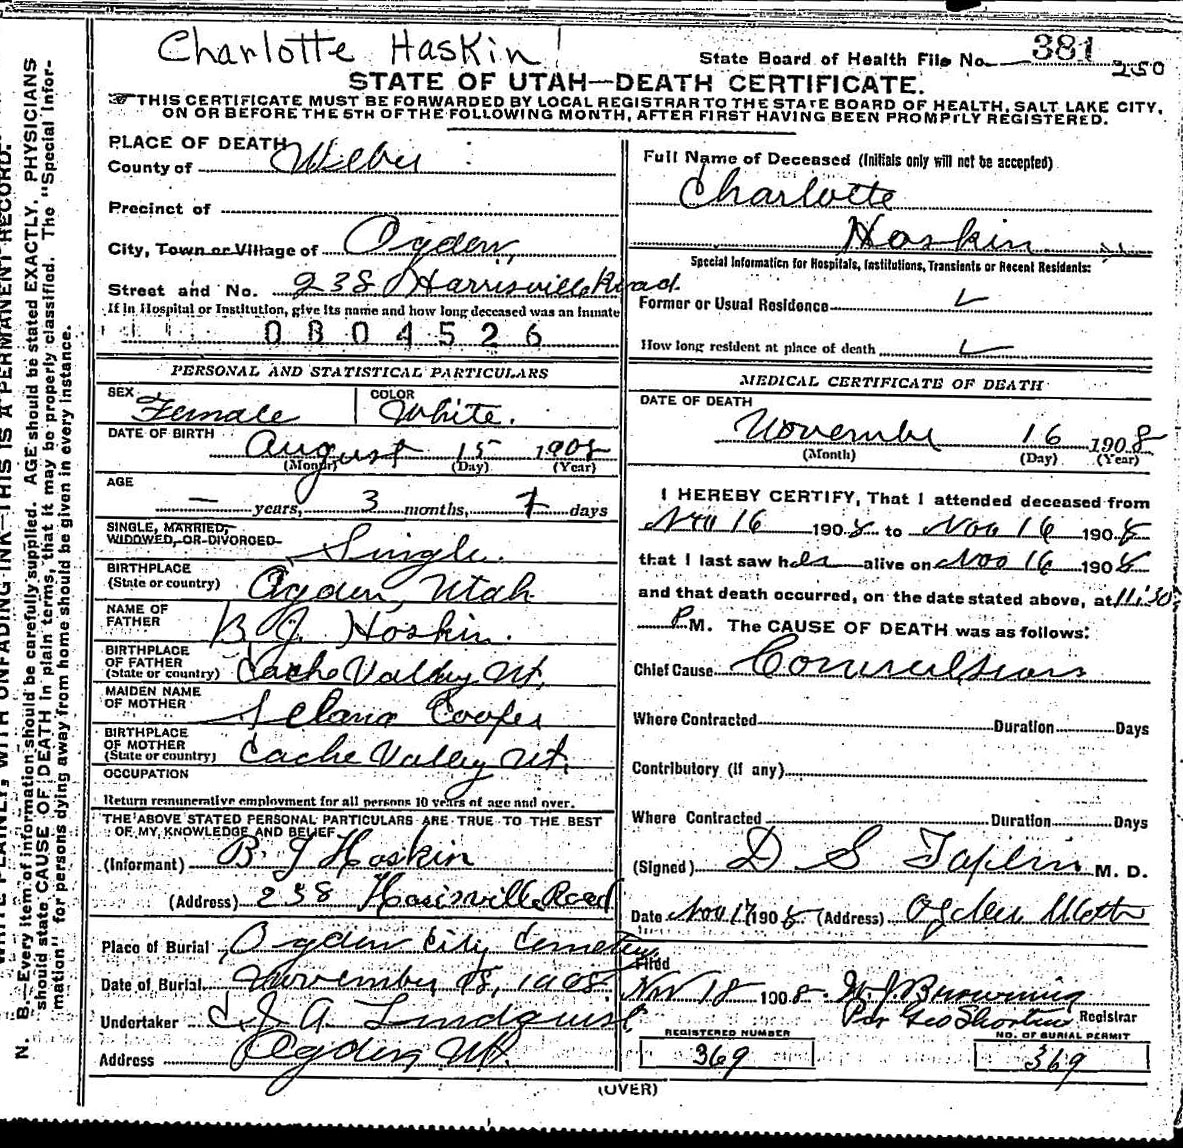 Charlotte Haskin
State Board of Health File No. 381
250
STATE OF UTAH—DEATH CERTIFICATE.
☞THIS CERTIFICATE MUST BE FORWARDED BY LOCAL REGISTRAR TO THE STATE BOARD OF HEALTH, SALT LAKE CITY,
ON OR BEFORE THE 5TH OF THE FOLLOWING MONTH, AFTER FIRST HAVING BEEN PROMPTLY REGISTERED.
PLACE OF DEATH
County of Weber
Precinct of
City, Town or Village of Ogden,
Street and No. 238 Harrisville Road.
If in Hospital or Institution, give its name and how long deceased was an inmate
0804526
PERSONAL AND STATISTICAL PARTICULARS
SEX Female COLOR White.
DATE OF BIRTH August 15 1908
(Month) (Day) (Year)
AGE
— years, 3 months, 7 days
SINGLE, MARRIED,
WIDOWED, OR DIVORCED Single.
BIRTHPLACE
(State or country) Ogden, Utah
NAME OF
FATHER B J Hoskin.
BIRTHPLACE
OF FATHER
(State or country) Cache Valley Ut.
MAIDEN NAME
OF MOTHER Cooper
BIRTHPLACE
OF MOTHER
(State or country) Cache Valley Ut.
OCCUPATION
Return remunerative employment for all persons 10 years of age and over.
THE ABOVE STATED PERSONAL PARTICULARS ARE TRUE TO THE BEST
OF MY KNOWLEDGE AND BELIEF
(Informant) B J Hoskin
(Address) 238 Harisville Road
Place of Burial Ogden City Cemetery
Date of Burial November 18, 1908
Undertaker J A Lindquist
Address Ogden Ut.
Full Name of Deceased (Initials only will not be accepted)
Charlotte
Hoskin
Special Information for Hospitals, Institutions, Transients or Recent Residents:
Former or Usual Residence ✓
How long resident at place of death ✓
MEDICAL CERTIFICATE OF DEATH
DATE OF DEATH
November 16 1908
(Month) (Day) (Year)
I HEREBY CERTIFY, That I attended deceased from
Nov 16 1908 to Nov 16 1908
that I last saw her alive on Nov 16 1908
and that death occurred, on the date stated above, at 11:30
P M. The CAUSE OF DEATH was as follows:
Chief Cause Convulsions
Where Contracted Duration Days
Contributory (if any)
Where Contracted Duration Days
(Signed) D S Taplin M. D.
Date Nov 17 1908 (Address) Ogden Utah
Filed
Nov 18 1908. W. J. Browning
Per Geo Shorten Registrar
REGISTERED NUMBER
369
NO. OF BURIAL PERMIT
369
(OVER)
WRITE PLAINLY, WITH UNFADING INK—THIS IS A PERMANENT RECORD.
N. B.—Every item of information should be carefully supplied. AGE should be stated EXACTLY. PHYSICIANS
should state CAUSE OF DEATH in plain terms, that it may be properly classified. The "Special Infor-
mation" for persons dying away from home should be given in every instance.